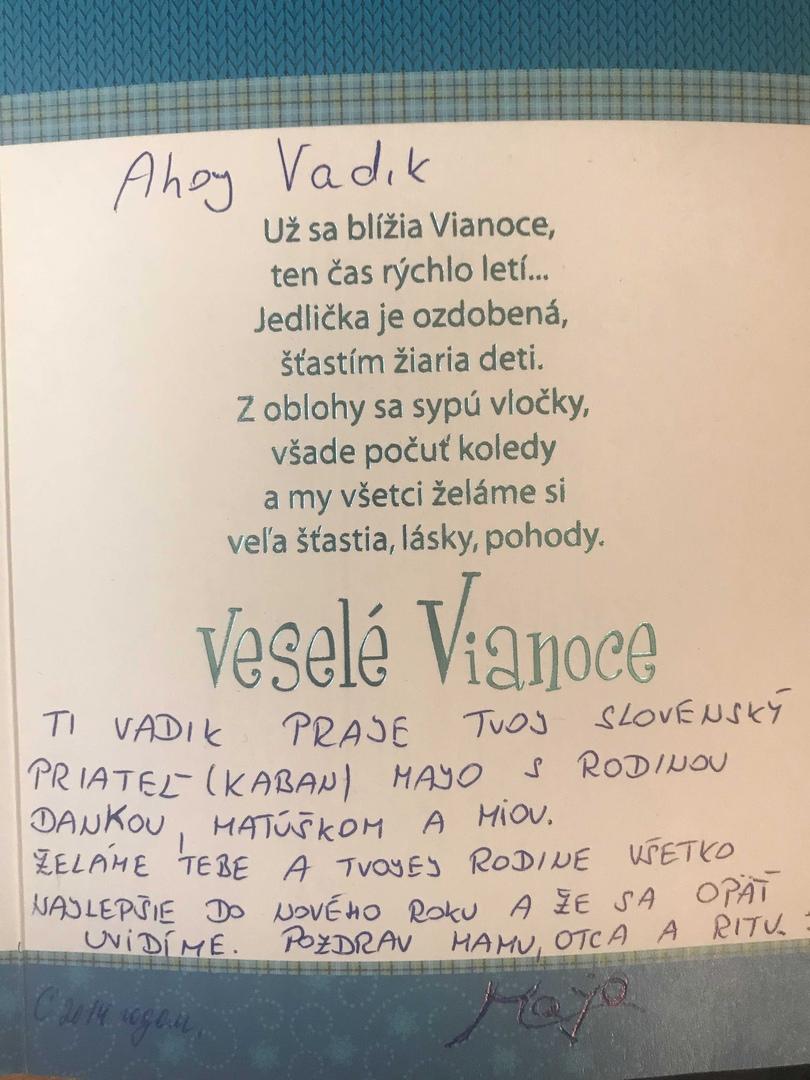 Ahoy Vadik
Už sa blížia Vianoce,
ten čas rýchlo letí...
Jedlička je ozdobená,
šťastím žiaria deti.
Z oblohy sa sypú vločky,
všade počuť koledy
a my všetci želáme si
veľa šťastia, lásky, pohody.
Veselé Vianoce
TI VADIK PRAJE TVOJ SLOVENSKÝ
PRIATEĽ (KABAN) MAJO S RODINOU
DANKOU, MATÚŠKOM A MIOU.
ŽELÁME TEBE A TVOJEJ RODINE VŠETKO
NAJLEPŠIE DO NOVÉHO ROKU A ŽE SA OPÄŤ
UVIDÍME. POZDRAV MAMU, OTCA A RITU.
С 2014 годом.
Majo